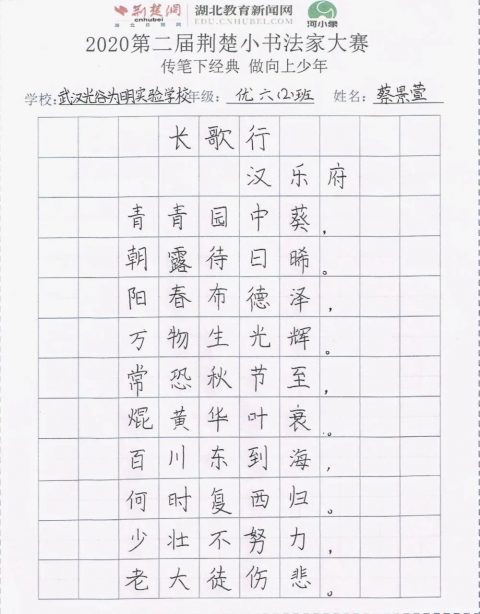 荆楚网
www.cnhubei.com
湖北日报网
湖北教育新闻网
EDU.CNHUBEI.COM
河小象
2020第二届荆楚小书法家大赛
传笔下经典 做向上少年
学校：武汉光谷为明实验学校 年级：优六(2)班 姓名：蔡景萱
长歌行
汉乐府
青青园中葵，
朝露待日晞。
阳春布德泽，
万物生光辉。
常恐秋节至，
焜黄华叶衰。
百川东到海，
何时复西归。
少壮不努力，
老大徒伤悲。